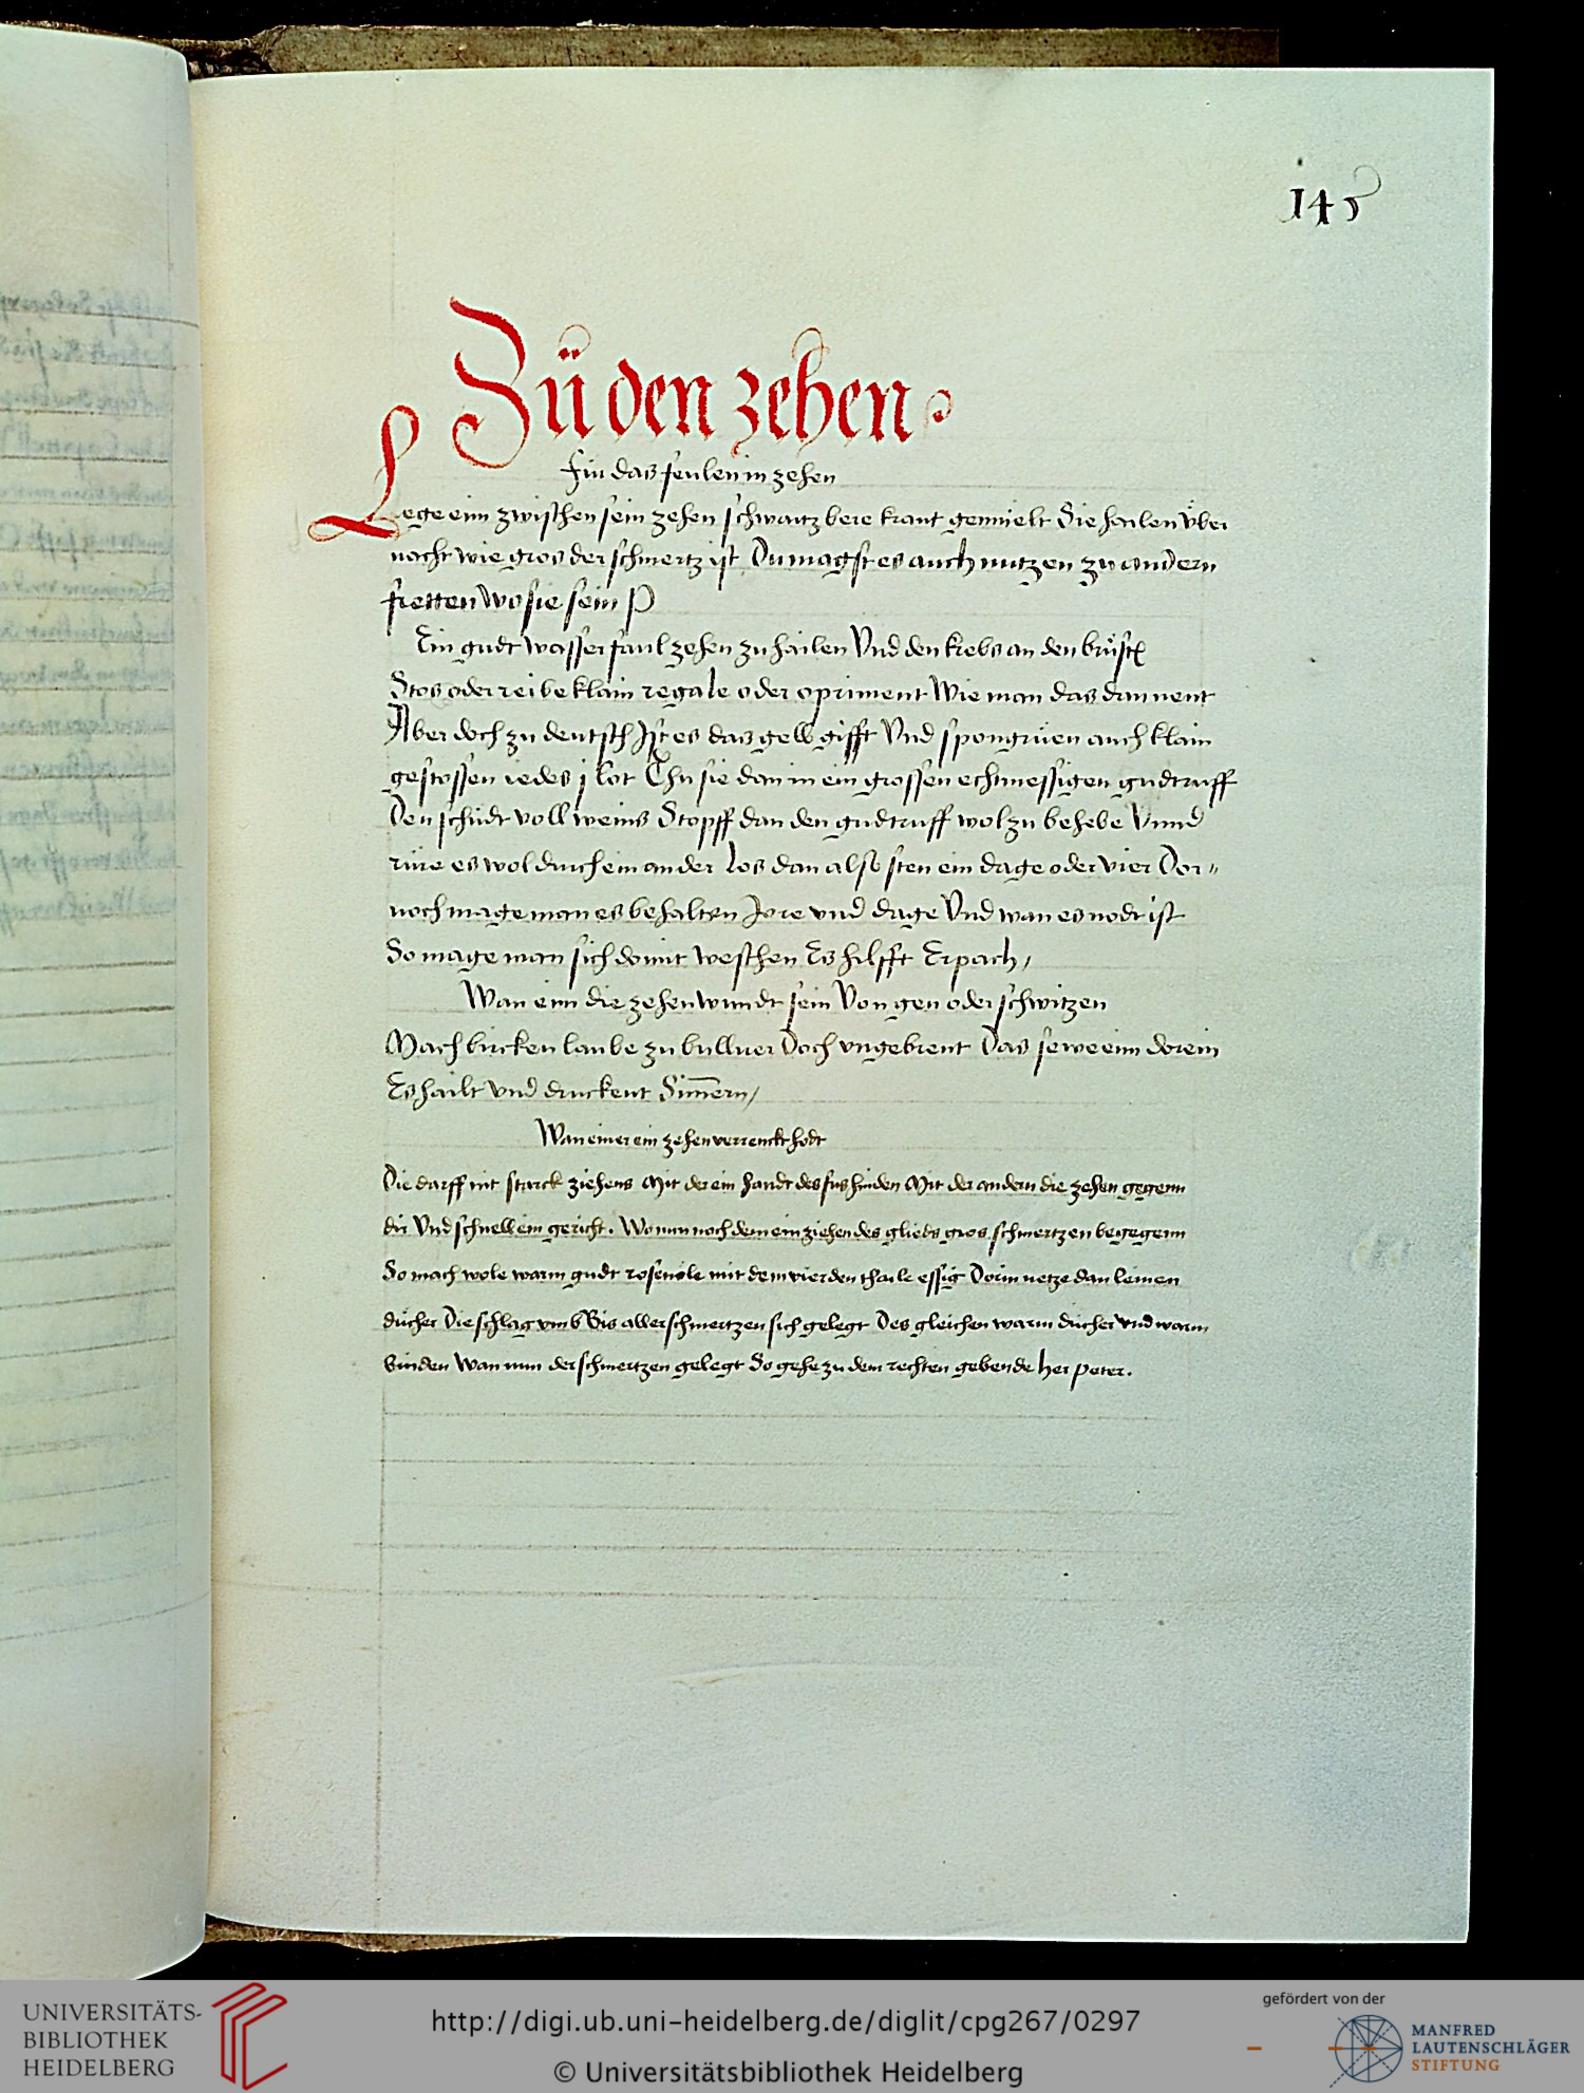 145
Zü den zehen
Für das feulen in zehen
Lege eim zwischen sein zehen schwartz bere kraut gemüelt Die hailen vber
nacht wie gros der schmertz ist Du magst es auch nutzen zu andern
fretten Wo sie sein P
Ein gudt wasser faul zehen zu hailen Vnd den krebs an den brüsten
Stos oder reibe klain regale oder opriment Wie man das dan nent
Aber doch zu deutsch Jst es das gelb gifft Vnd spongrüen auch klain
gestossen iedes j lot Thu sie dan in ein grossen echtmessigen gudtruff
Den schüdt voll weins Stopff dan den gudtruff wol zu behebe Vnnd
rüre es wol durch einander Los dan also sten ein dage oder vier Dor"
noch mage man es behalten Jore vnd dage Vnd wan es nodt ist
So mage man sich domit weschen Es hilfft Erpach,
Wan eim die zehen wundt sein Von gen oder schwitzen
Mach bircken laube zu bulluer Doch vngebrent Das sewe eim dorein
Es hailt vnd druckent Simern,
Wan einer ein zehen verrenckt hodt
Die darff nit starck ziehens Mit der ein handt des fus hinden Mit der andern die zehen gegenn
dir Vnd schnell ein gericht. Wo nun noch dem ein ziehen des glieds gros schmertzen begegenn
So mach wole warm gudt rosenole mit dem vierden thaile essig Dorin netze dan leinen
dücher Die schlag vmb Bis aller schmertzen sich gelegt Des gleichen warm ducher vnd warm
binden Wan nun der schmertzen gelegt So gehe zu dem rechten gebende her peter.
UNIVERSITÄTS-
BIBLIOTHEK
HEIDELBERG
http://digi.ub.uni-heidelberg.de/diglit/cpg267/0297
© Universitätsbibliothek Heidelberg
gefördert von der
MANFRED
LAUTENSCHLÄGER
STIFTUNG